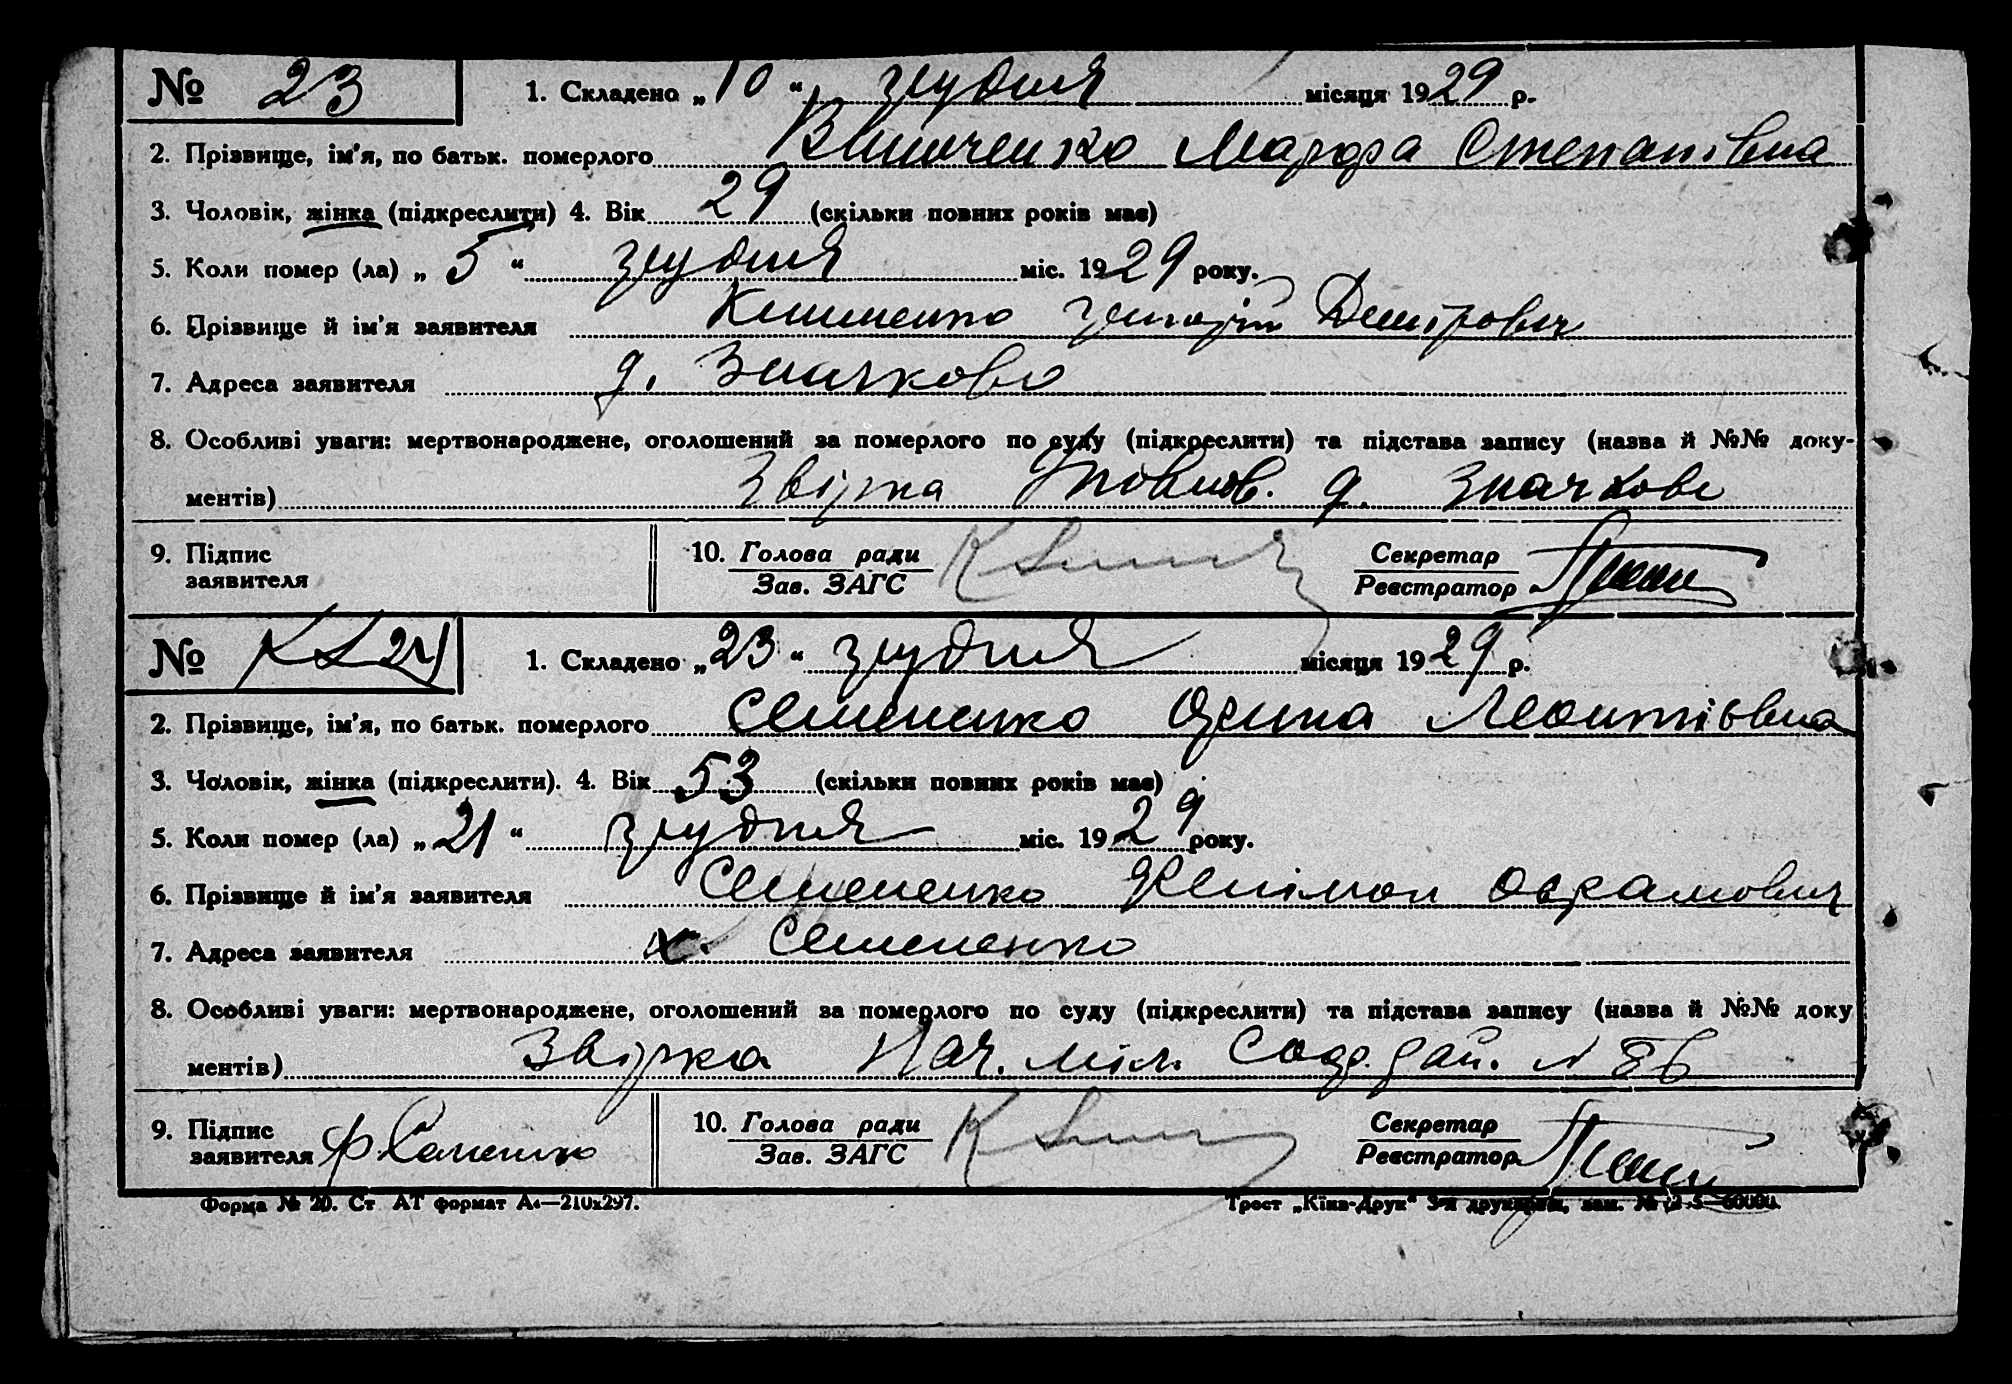 № 23 1. Складено „10“ грудня місяця 1929 р.
2. Прізвище, ім'я, по батьк. померлого Винниченко Марфа Степанівна
3. Чоловік, жінка (підкреслити) 4. Вік 29 (скільки повних років має)
5. Коли помер (ла) „5“ грудня міс. 1929 року.
6. Прізвище й ім'я заявителя Григорій Дмитрович
7. Адреса заявителя д. Значково
8. Особливі уваги: мертвонароджене, оголошений за померлого по суду (підкреслити) та підстава запису (назва й №№ доку-
ментів) Звірка Уповнов. д. Значкове
9. Підпис 10. Голова ради Секретар
заявителя Зав. ЗАГС Реєстратор
№ 24 1. Складено „23“ грудня місяця 1929 р.
2. Прізвище, ім'я, по батьк. померлого Семененко Орина Леонтіівна
3. Чоловік, жінка (підкреслити). 4. Вік 53 (скільки повних років має)
5. Коли помер (ла) „21“ грудня міс. 1929 року.
6. Прізвище й ім'я заявителя Семененко Оврамович
7. Адреса заявителя х. Семененко
8. Особливі уваги: мертвонароджене, оголошений за померлого по суду (підкреслити) та підстава запису (назва й №№ доку
ментів) Звірка Нач. міл.
9. Підпис 10. Голова ради Секретар
заявителя Ф. Семененко Зав. ЗАГС Реєстратор
Форма № 20. Ст АТ формат А4—210x297. Трест „Київ-Друк“ 3-я друкарня, зам. №